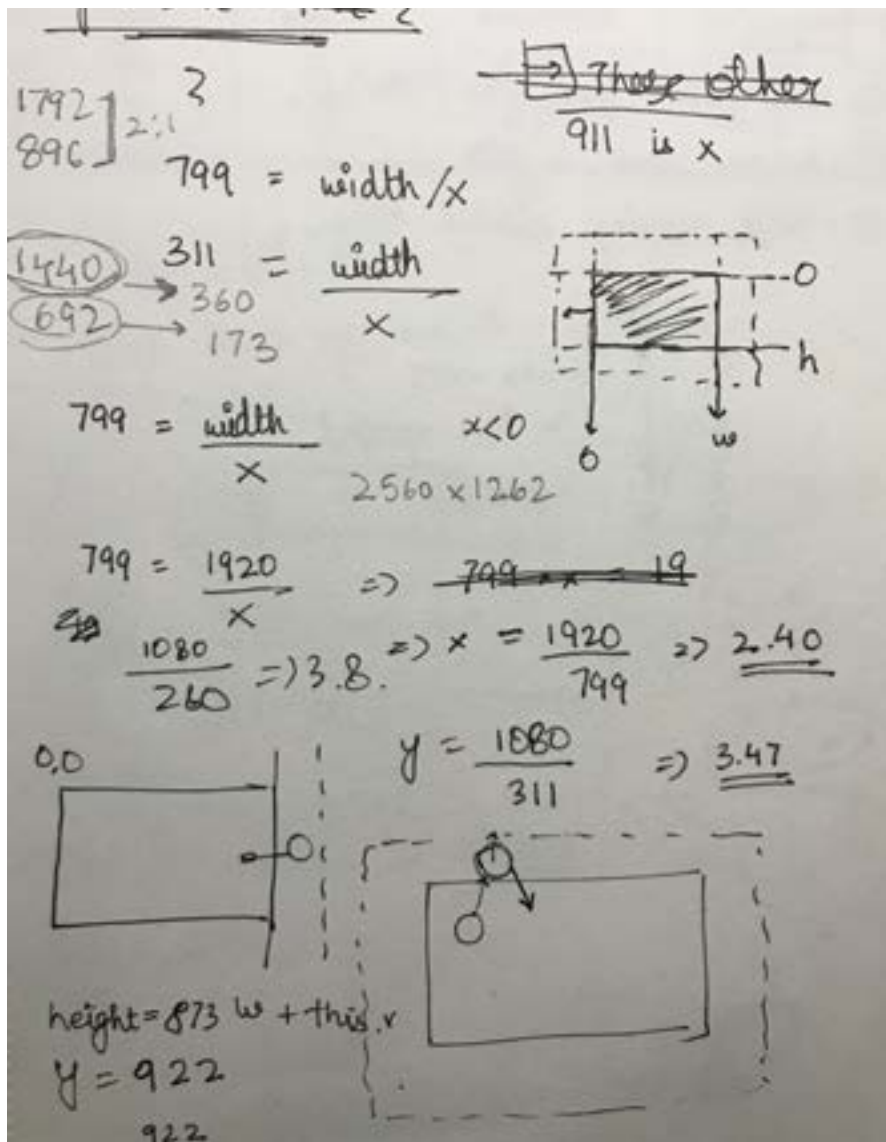 1792
896 ] 2:1
These other
911 is x
799 = width/x
1440 → 360
692 → 173
311 = width
x
0
h
0
w
799 = width
x
x<0
2560 x 1262
799 = 1920
x
=> 799 x 19
1080
260
=> 3.8.
=> x = 1920
799
=> 2.40
y = 1080
311
=> 3.47
0,0
height = 873
w + this.r
y = 922
922